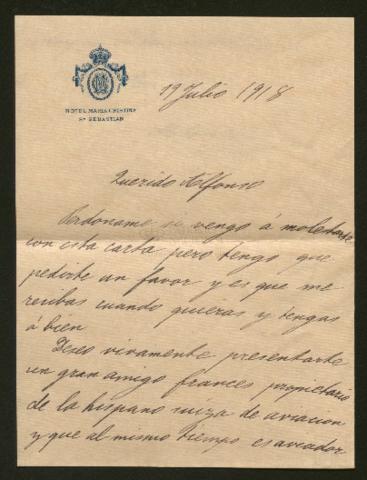 HOTEL MARIA CRISTINA
Sn SEBASTIAN
19 Julio 1918
Querido Alfonso
Perdoname si vengo á molestarte
con esta carta pero tengo que
pedirte un favor y es que me
recibas cuando quieras y tengas
á bien
Deseo vivamente presentarte
un gran amigo frances propietario
de la hispano suiza de aviacion
y que al mismo tiempo es aviador